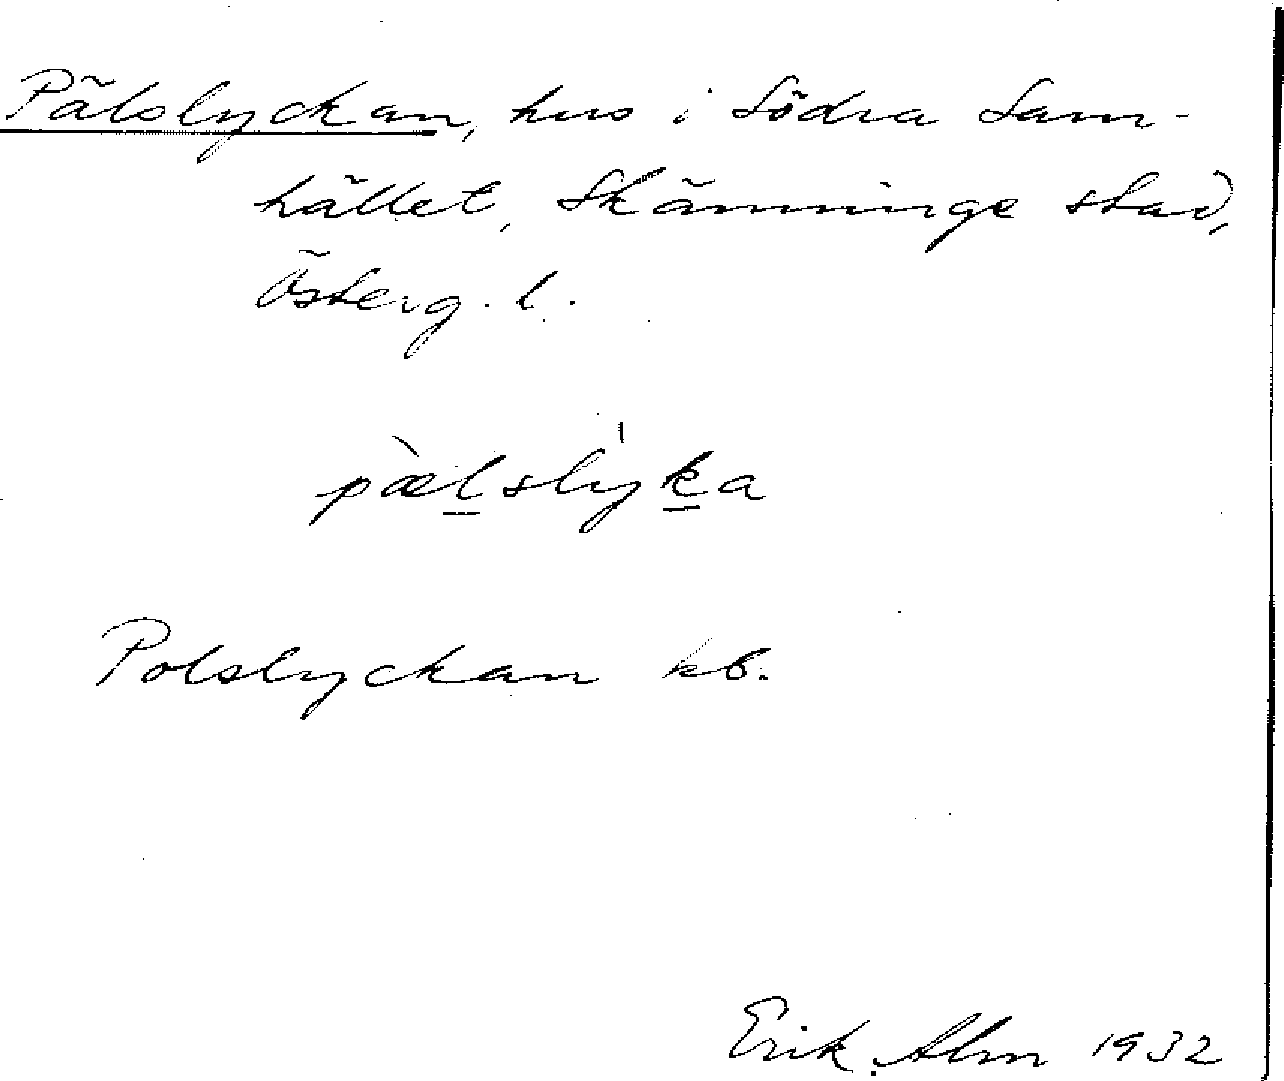 Pälslyckan, hus i Södra Sam-
hället, Skänninge stad,
Österg. l.
pæ̀lsly̍ka
Polslyckan kb.
Erik Alm 1932